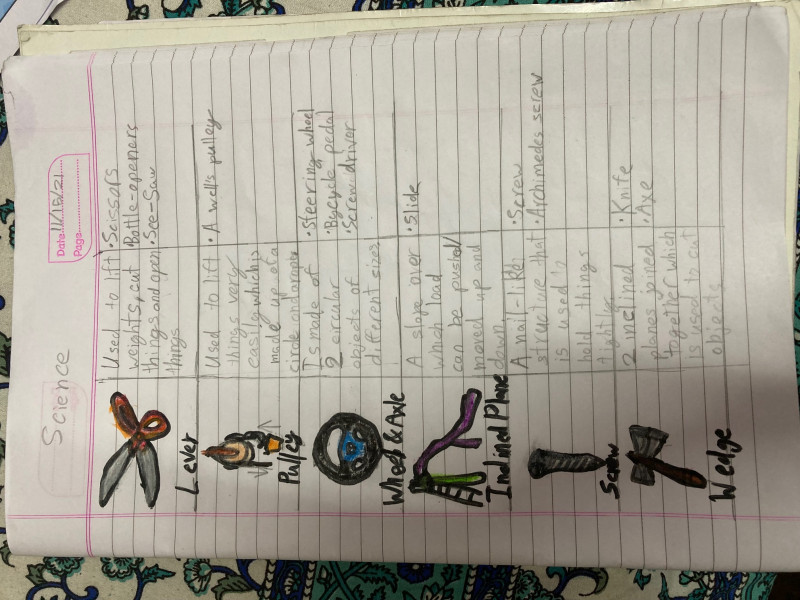 Science
Date: 11/15/21
Page
Lever
Used to lift
weights, cut
things and open
things
• Scissors
• Bottle-openers
• See-Saw
Pulley
Used to lift
things very
easily which is
made up of a
circle and a rope
• A well's pulley
Wheel & Axle
Is made of
2 circular
objects of
different sizes
• Steering-wheel
• Bycycle pedal
• Screw driver
Inclined Plane
A slope over
which load
can be pushed/
moved up and
down
• Slide
Screw
A nail-like
structure that
is used to
hold things
tightly
• Screw
• Archimedes screw
Wedge
2 inclined
planes joined
together which
is used to cut
objects
• Knife
• Axe